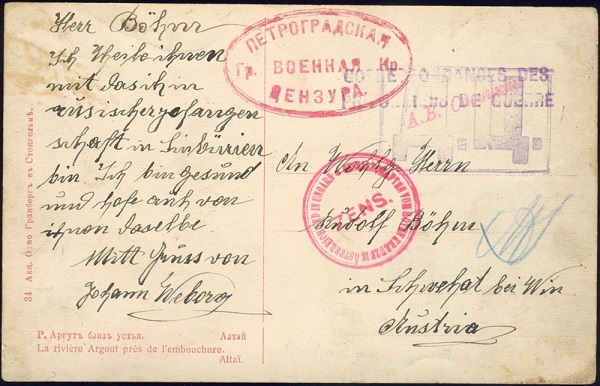 Herr Böhm
Ich Theile ihnen
mit das ich in
rusischer gefangen
schaft in Sibürien
bin. Ich bin gesund
und hofe auch von
ihnen daselbe
Mitt Gruss von
Johann
ПЕТРОГРАДСКАЯ
Гр. ВОЕННАЯ Кр.
ЦЕНЗУРА.
DES
DE GUERRE
А.В.
ZENS.
An Wohlg. Herrn
Rudolf Böhm
in Schwehat bei Win
Austria
34 Акц. О-во Гранбергъ въ Стокгольмѣ.
Р. Аргутъ близъ устья. Алтай
La rivière Argout près de l'embouchure.
Altaï.